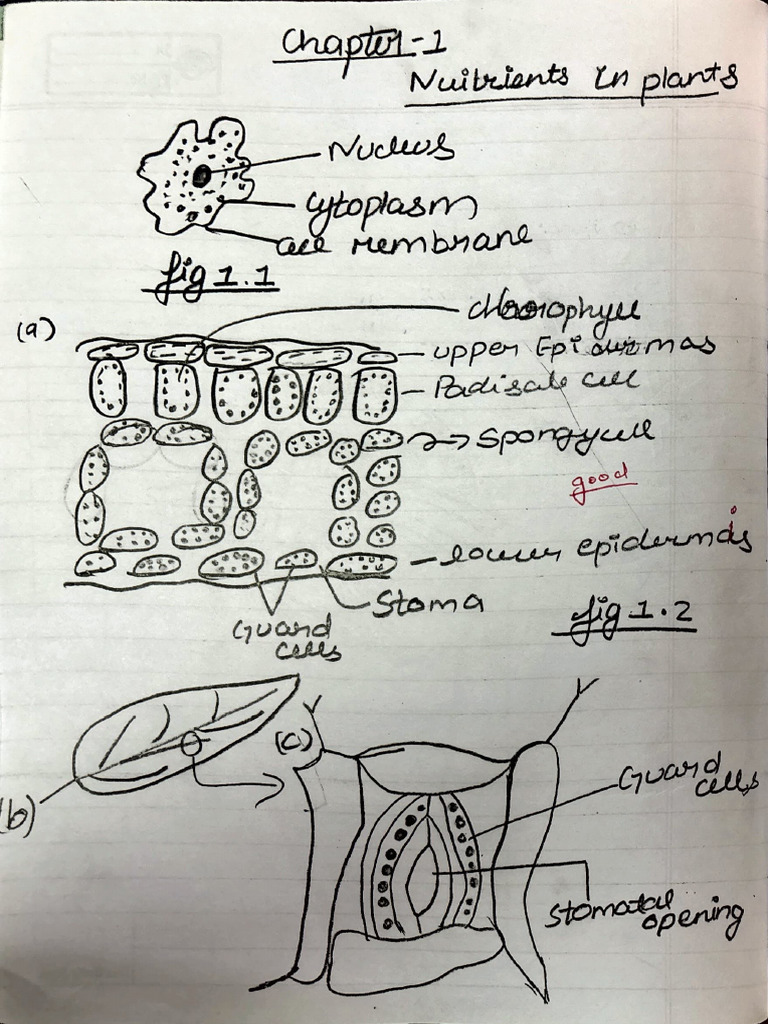 Chapter-1
Nuitrients in plants
Nucleus
Cytoplasm
Cell membrane
fig 1.1
(a)
chlorophyll
upper Epidermas
Padisale cell
Spongycell
good
lower epidermis
Stoma
Guard
cells
fig 1.2
(b)
(c)
Guard
cells
Stomatal
opening